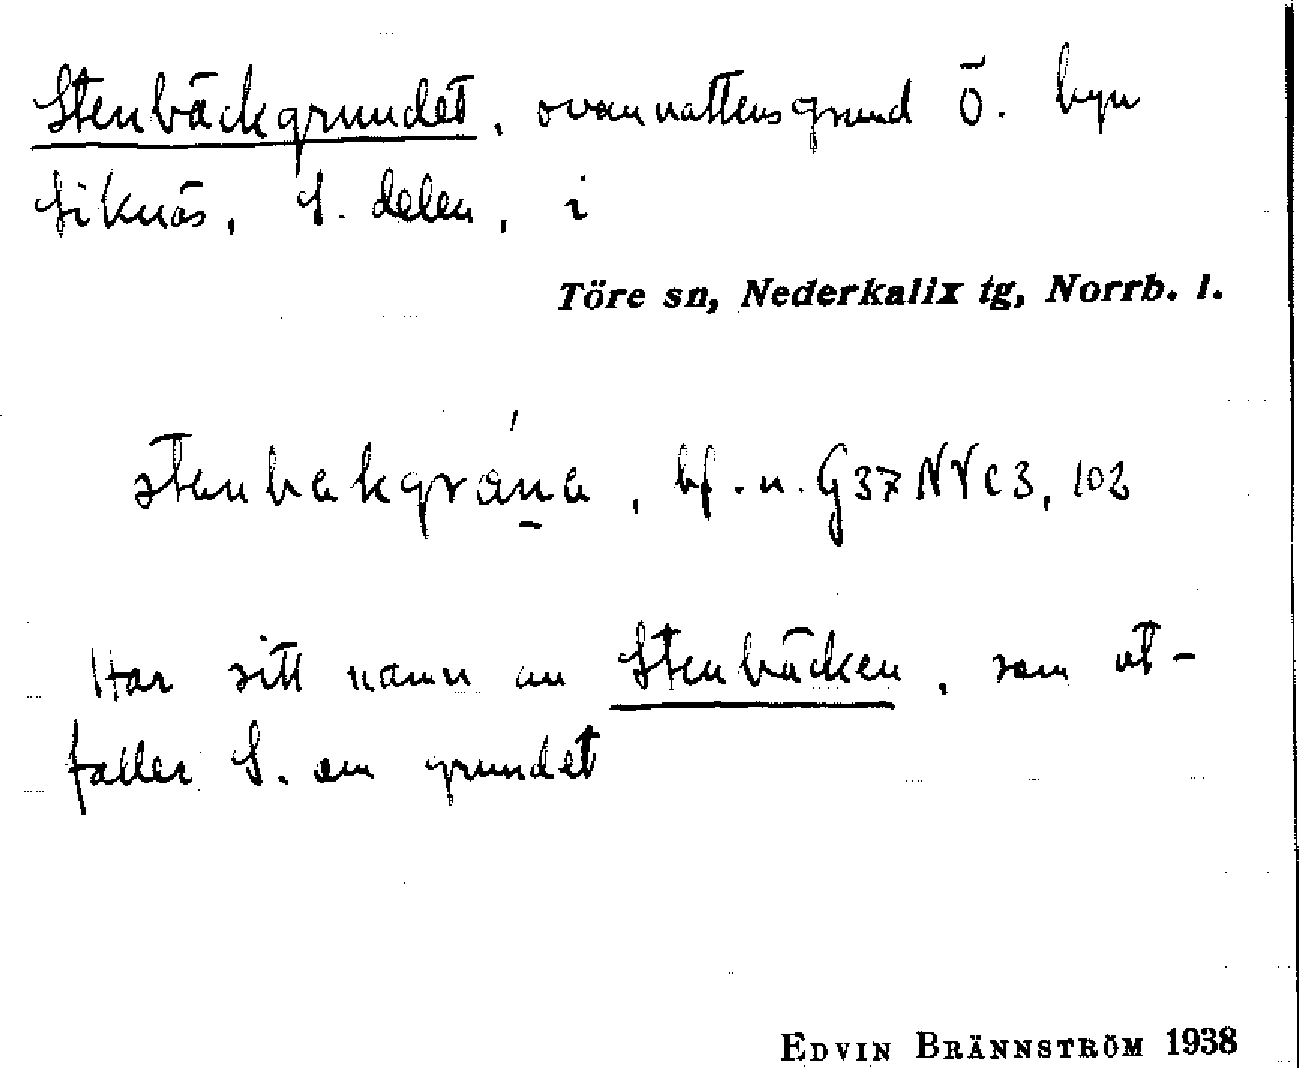 Stenbäckgrundet, ovanvattensgrund Ö. byn
Siknäs, S. delen, i
Töre sn, Nederkalix tg, Norrb. l.
stenbakgrána, bf. n. G37NVC3, 102
Har sitt namn av Stenbäcken, som ut-
faller S. om grundet
EDVIN BRÄNNSTRÖM 1938